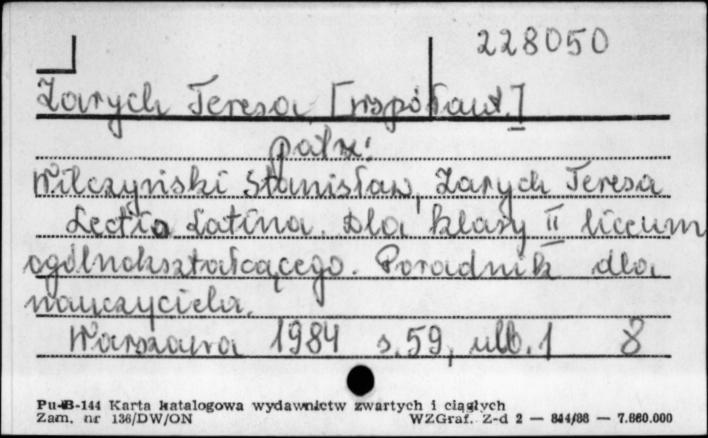 228050
Zarych Teresa [współaut.]
patrz:
Wilczyński Stanisław, Zarych Teresa
Lectio Latina. Dla klasy II liceum
ogólnokształcącego. Poradnik dla
nauczyciela.
Warszawa 1984 s.59, ulb.1 8
Pu-B-144 Karta katalogowa wydawnictw zwartych i ciągłych
Zam. nr 136/DW/ON WZGraf. Z-d 2 — 844/86 — 7.860.000